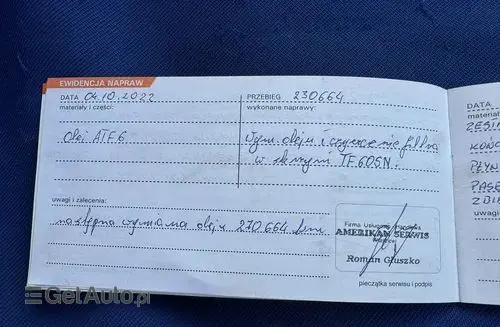 EWIDENCJA NAPRAW
DATA 04.10.2022
materiały i części:
Olej ATF 6
PRZEBIEG 230664
wykonane naprawy:
wym oleju i czyszczenie filtra
w skrzyni TF60SN.
uwagi i zalecenia:
następna wymiana oleju 270 664 km
Firma Usługowo
AMERIKAN SERWIS
Roman Głuszko
pieczątka serwisu i podpis
DATA
materiał
KOŃC
PŁYN
PASK
GetAuto.pl